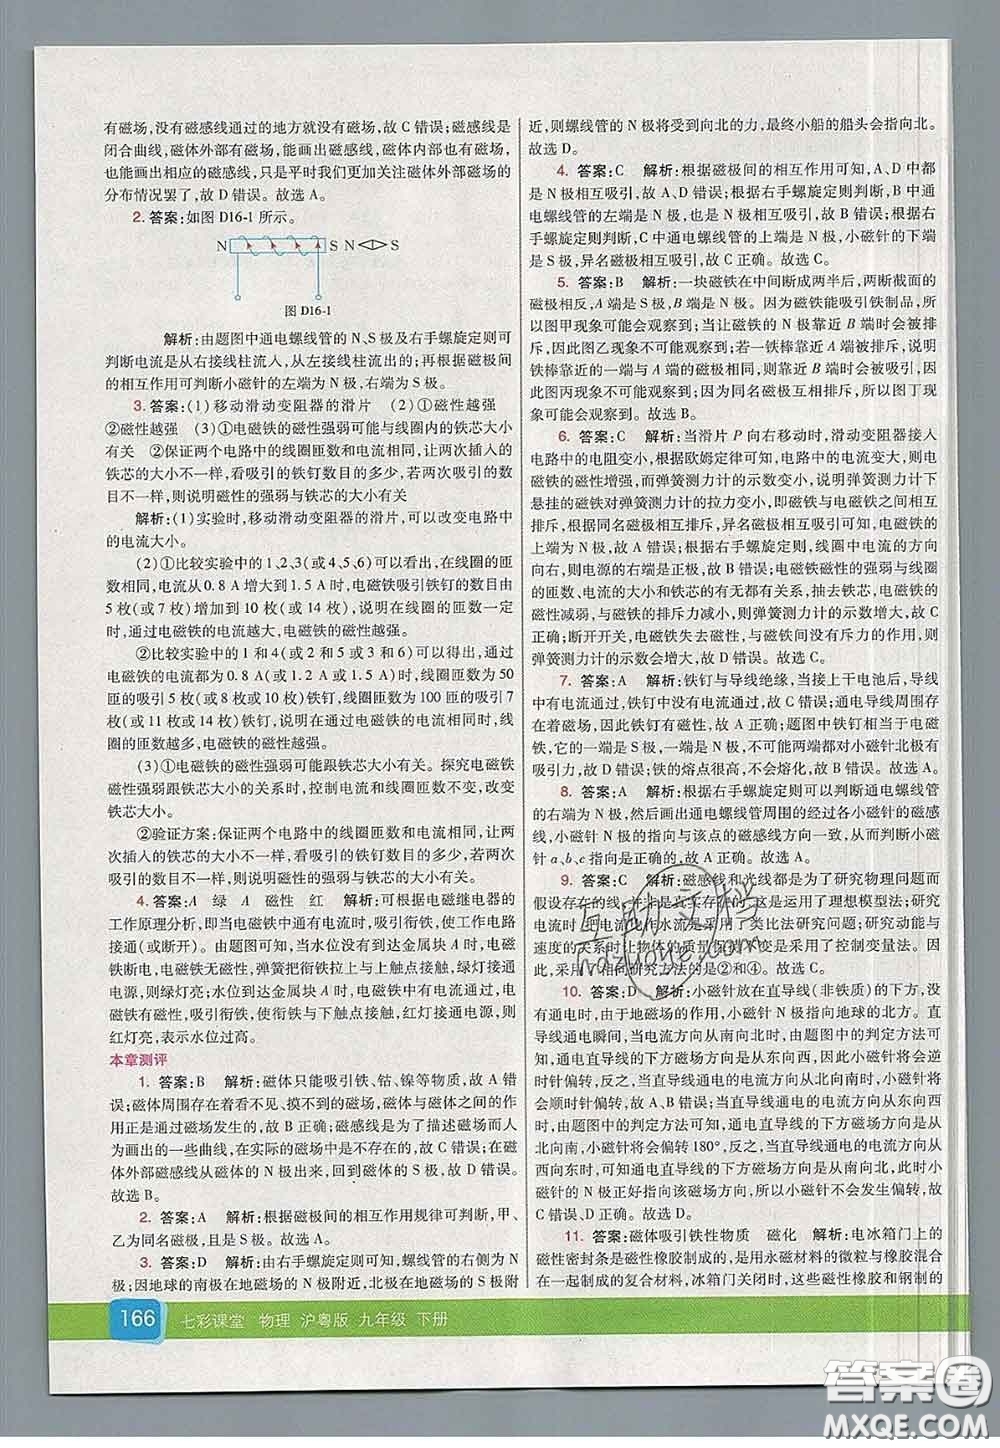 有磁场,没有磁感线通过的地方就没有磁场,故 C 错误;磁感线是
闭合曲线,磁体外部有磁场,能画出磁感线,磁体内部也有磁场,
也能画出相应的磁感线,只是平时我们更加关注磁体外部磁场的
分布情况罢了,故 D 错误。故选 A。
2. 答案:如图 D16-1 所示。
N S N S
图 D16-1
解析:由题图中通电螺线管的 N、S 极及右手螺旋定则可
判断电流是从右接线柱流入,从左接线柱流出的;再根据磁极间
的相互作用可判断小磁针的左端为 N 极,右端为 S 极。
3. 答案:(1)移动滑动变阻器的滑片 (2)①磁性越强
②磁性越强 (3)①电磁铁的磁性强弱可能与线圈内的铁芯大小
有关 ②保证两个电路中的线圈匝数和电流一样,两次插入的
铁芯的大小不一样,看吸引的铁钉数目的多少,若两次吸引的
数目不一样,则说明磁性的强弱与铁芯的大小有关
解析:(1)实验时,移动滑动变阻器的滑片,可以改变电路中
的电流大小。
(2)①比较实验中的 1、2、3(或 4、5、6)可以看出,在线圈的匝
数相同,电流从 0.8 A 增大到 1.5 A 时,电磁铁吸引铁钉的数目由
5 枚(或 7 枚)增加到 10 枚(或 14 枚),说明在线圈的匝数一定
时,通过电磁铁的电流越大,电磁铁的磁性越强。
②比较实验中的 1 和 4(或 2 和 5 或 3 和 6)可以得出,通过
电磁铁的电流都为 0.8A(或 1.2A 或 1.5A)时,线圈匝数为 50
匝的吸引 5 枚(或 8 枚或 10 枚)铁钉,线圈匝数为 100 匝的吸引 7
枚(或 11 枚或 14 枚)铁钉,说明在通过电磁铁的电流相同时,线
圈的匝数越多,电磁铁的磁性越强。
(3)①电磁铁的磁性强弱可能跟铁芯大小有关。探究电磁铁
磁性强弱跟铁芯大小的关系时,控制电流和线圈匝数不变,改变
铁芯大小。
②验证方案:保证两个电路中的线圈匝数和电流一样,让两
次插入的铁芯的大小不一样,看吸引的铁钉数目的多少,若两次
吸引的数目不一样,则说明磁性的强弱与铁芯的大小有关。
4. 答案:A 绿 A 磁性 红 解析:可根据电磁继电器的
工作原理分析,即当电磁铁中有电流时,吸引衔铁,使工作电路
接通(或断开)。由题图可知,当水位没有到达金属块 A 时,电
磁铁断电,电磁铁无磁性,弹簧把衔铁拉起与上触点接触,绿灯接通
电源,则绿灯亮;水位到达金属块 A 时,电磁铁中有电流,吸引
衔铁,使衔铁与下触点接触,红灯接通电源,则
红灯亮,表示水位过高。
本章测评
1. 答案:B 解析:磁体只能吸引铁、钴、镍等物质,故 A 错
误;磁体周围存在着看不见、摸不到的磁场,磁体间的相互作用
是通过磁场发生的,故 B 正确;磁感线是为了描述磁场而人
为画出的一些曲线,在实际的磁场中是不存在的,故 C 错误;在磁
体外部磁感线从磁体的 N 极出来,回到磁体的 S 极,故 D 错误。
故选 B。
2. 答案:A 解析:根据磁极间的相互作用规律可判断,甲、
乙为同名磁极,且是 S 极。故选 A。
3. 答案:D 解析:由右手螺旋定则可知,螺线管的右侧为 N
极;因地球的南极在地磁场的 N 极附近,北极在地磁场的 S 极附
近,则螺线管的 N 极将受到向北的力,最终小船的船头会指向北。
故选 D。
4. 答案:C 解析:根据磁极间的相互作用可知,A、D 中都
是 N 极相互吸引,故 A、D 错误;根据右手螺旋定则判断,B 中通
电螺线管的左端是 N 极,也是 N 极相互吸引,故 B 错误;根据右
手螺旋定则判断,C 中通电螺线管的上端是 N 极,小磁针的下端
是 S 极,异名磁极相互吸引,故 C 正确。故选 C。
5. 答案:B 解析:一块磁铁在中间断成两半后,两断截面的
磁极相反,A 端是 S 极,B 端是 N 极。因为磁铁能吸引铁制品,所
以图甲现象可能会观察到;当让磁铁的 N 极靠近 B 端时会被排
斥,因此图乙现象不可能观察到;若一铁棒靠近 A 端被排斥,说明
铁棒靠近的一端与 A 端的磁极相同,则铁棒靠近 B 端时会被吸引,因
此图丙现象不可能观察到;因为同名磁极互相排斥,所以图丁现
象可能会观察到。故选 B。
6. 答案:C 解析:当滑片 P 向右移动时,滑动变阻器接入
电路中的电阻变小,根据欧姆定律可知,电路中的电流变大,则电
磁铁的磁性增强,而弹簧测力计的示数变小,说明弹簧测力计下
悬挂的磁铁对弹簧测力计的拉力变小,即磁铁与电磁铁之间相互
排斥,根据同名磁极相互排斥、异名磁极相互吸引可知,电磁铁的
上端为 N 极,故 A、B 错误;根据右手螺旋定则,线圈中电流的方向
向右,则电源的右端是正极,因电磁铁磁性的强弱与线圈的匝
数、电流的大小和铁芯的有无都有关系,抽去铁芯,电磁铁的
磁性减弱,与磁铁的排斥力减小,则弹簧测力计的示数增大,故 C
正确;断开开关,电磁铁失去磁性,与磁铁间没有斥力的作用,则
弹簧测力计的示数会增大,故 D 错误。故选 C。
7. 答案:A 解析:铁钉与导线绝缘,当接上干电池后,导线
中有电流通过,铁钉中没有电流通过,故 C 错误;通电导线周围存
在着磁场,因此铁钉有磁性,故 A 正确;题图中铁钉相当于电磁
铁,它的一端是 S 极,一端是 N 极,不可能两端都对小磁针北极有
吸引力,故 B 错误;铁的熔点很高,不会熔化,故 D 错误。故选 A。
8. 答案:A 解析:根据右手螺旋定则可以判断通电螺线管
的右端为 N 极,然后画出通电螺线管周围的经过各小磁针的磁感
线,小磁针 N 极的指向与该点的磁感线方向一致,从而判断小磁
针 a、b、c 指向是正确的,故 A 正确。故选 A。
9. 答案:C 解析:磁感线和光线都是为了研究物理问题而
假设存在的线,
电流时,水流是采用了类比法研究问题;研究动能与
速度的关系时,让物体的质量保持不变是采用了控制变量法。
所以采用了相同研究方法的是②和④。故选 C。
10. 答案:D 解析:小磁针放在直导线(非铁质)的下方,没
有通电时,由于地磁场的作用,小磁针 N 极指向地球的北方。直
导线通电瞬间,当电流方向从南向北时,由题图中的判定方法可
知,通电直导线的下方磁场方向从东向西,因此小磁针会从逆时
针偏转,反之,当直导线通电的电流方向从北向南时,小磁针会顺
时针偏转,故 A、B 错误;当直导线通电的电流方向从东向西时,由
题图中的判定方法可知,通电直导线的下方磁场方向从北向南,
小磁针会偏转 180°,反之,当直导线通电的电流方向从
西向东时,可知通电直导线的下方磁场方向是从南向北,此时小
磁针的 N 极正好指向该磁场方向,所以小磁针不会发生偏转,故
C 错误,D 正确。故选 D。
11. 答案:磁体吸引铁性物质 磁化 解析:电冰箱门上的
磁性密封条是磁性橡胶制成的,是用永磁材料的微粒与橡胶混合
在一起制成的复合材料,冰箱门关闭时,这些磁性橡胶和钢制的
166 七彩课堂 物理 沪粤版 九年级 下册
互助文档
hdzuone.com
答案圈
MXQE.COM